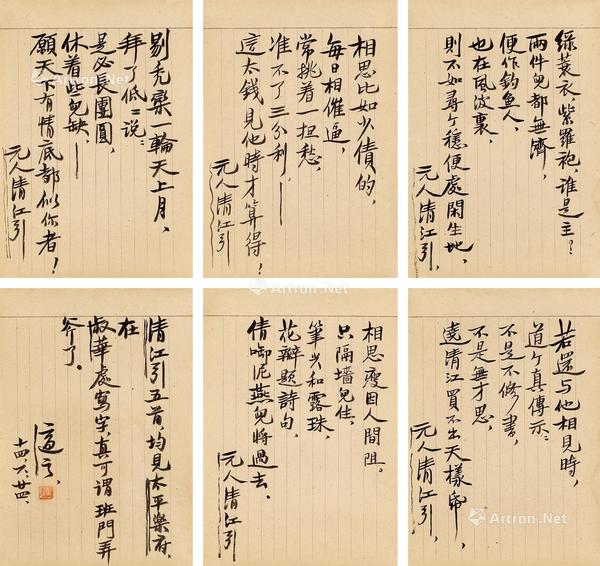 綠蓑衣、紫羅袍、誰是主？
兩件兒都無濟，
便作釣魚人，
也在風波裏，
則不如尋个穩便處閑坐地，
元人清江引，
相思比如少債的，
每日相催逼，
常挑着一担愁，
准不了三分利，
這本錢見他時才算得！
元人清江引
剔禿圞一輪天上月，
拜了低〻說：
是必長團圓，
休着些兒缺，
願天下有情底都似你者！
元人清江引
若還与他相見時，
道个真傳示：
不是不修書，
不是無才思，
遶清江買不出天樣帋
元人清江引，
相思瘦因人間阻。
只隔墻兒住，
筆尖和露珠，
花瓣題詩句，
倩啣泥燕兒將過去。
元人清江引
清江引五首，均見太平樂府，
在
淑華處寫字，真可謂班門弄
斧了。
適之、
十四，六，廿四，
Artron.Net
Artron.Net
Artron.Net